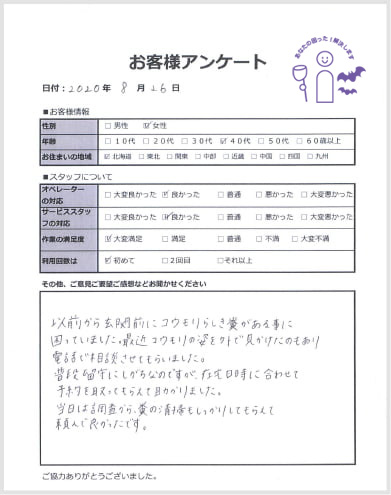 あなたの困った!解決します
お客様アンケート
日付：2020年 8月26日
■お客様情報
性別 □男性 ☑女性
年齢 □10代 □20代 □30代 ☑40代 □50代 □60歳以上
お住まいの地域 ☑北海道 □東北 □関東 □中部 □近畿 □中国 □四国 □九州
■スタッフについて
オペレーターの対応 □大変良かった ☑良かった □普通 □悪かった □大変悪かった
サービススタッフの対応 □大変良かった ☑良かった □普通 □悪かった □大変悪かった
作業の満足度 ☑大変満足 □満足 □普通 □不満 □大変不満
利用回数は ☑初めて □2回目 □それ以上
その他、ご意見ご要望ご感想などお聞かせください
以前から玄関前にコウモリらしき糞がある事に
困っていました。最近コウモリの姿を外で見かけたのもあり
電話で相談させてもらいました。
普段留守にしがちなのですが、在宅日時に合わせて
予約を取ってもらえて助かりました。
当日は調査から、糞の清掃もしっかりしてもらえて
頼んで良かったです。
ご協力ありがとうございました。